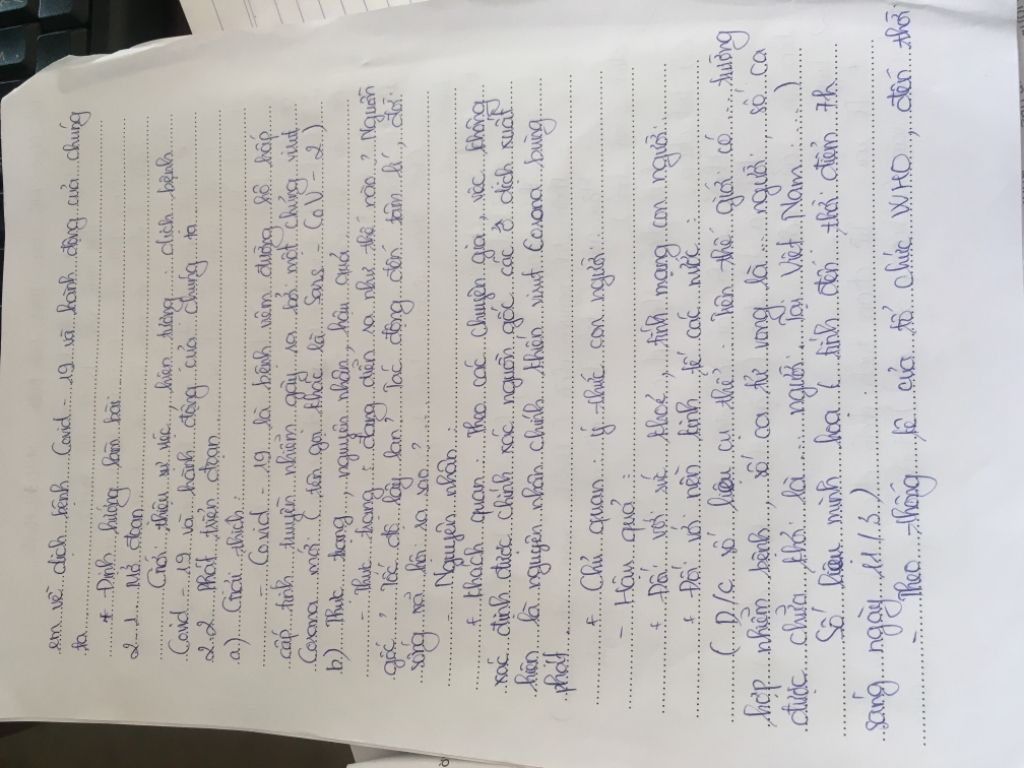 em về dịch bệnh Covid - 19 và hành động của chúng
ta.
* Định hướng làm bài
2-1 Mở đoạn.
Giới thiệu sự việc, hiện tượng: dịch bệnh
Covid - 19 và hành động của chúng ta
2.2 Phát triển đoạn
a) Giải thích:
- Covid - 19 là bệnh viêm đường hô hấp
cấp tính truyền nhiễm gây ra bởi một chủng virut
Corona mới (tên gọi khác là Sars - CoV - 2)
b) Thực trạng, nguyên nhân, hậu quả
- Thực trạng: đang diễn ra như thế nào? Nguồn
gốc? Tốc độ lây lan? Tác động đến tâm lí, đời
sống xã hội ra sao?
- Nguyên nhân:
+ Khách quan: Theo các chuyên gia, việc không
xác định được chính xác nguồn gốc các ổ dịch xuất
hiện là nguyên nhân chính khiến virut Corona bùng
phát
+ Chủ quan: ý thức con người
- Hậu quả:
+ Đối với sức khoẻ, tính mạng con người.
+ Đối với nền kinh tế các nước.
( D/c số liệu cụ thể: Trên thế giới có ... trường
hợp nhiễm bệnh, số ca tử vong là ... người, số ca
được chữa khỏi là ... người. Tại Việt Nam: ... )
Số liệu minh hoạ ( tính đến thời điểm 7h
sáng ngày 11/3/)
- Theo thống kê của tổ chức WHO, đến thời